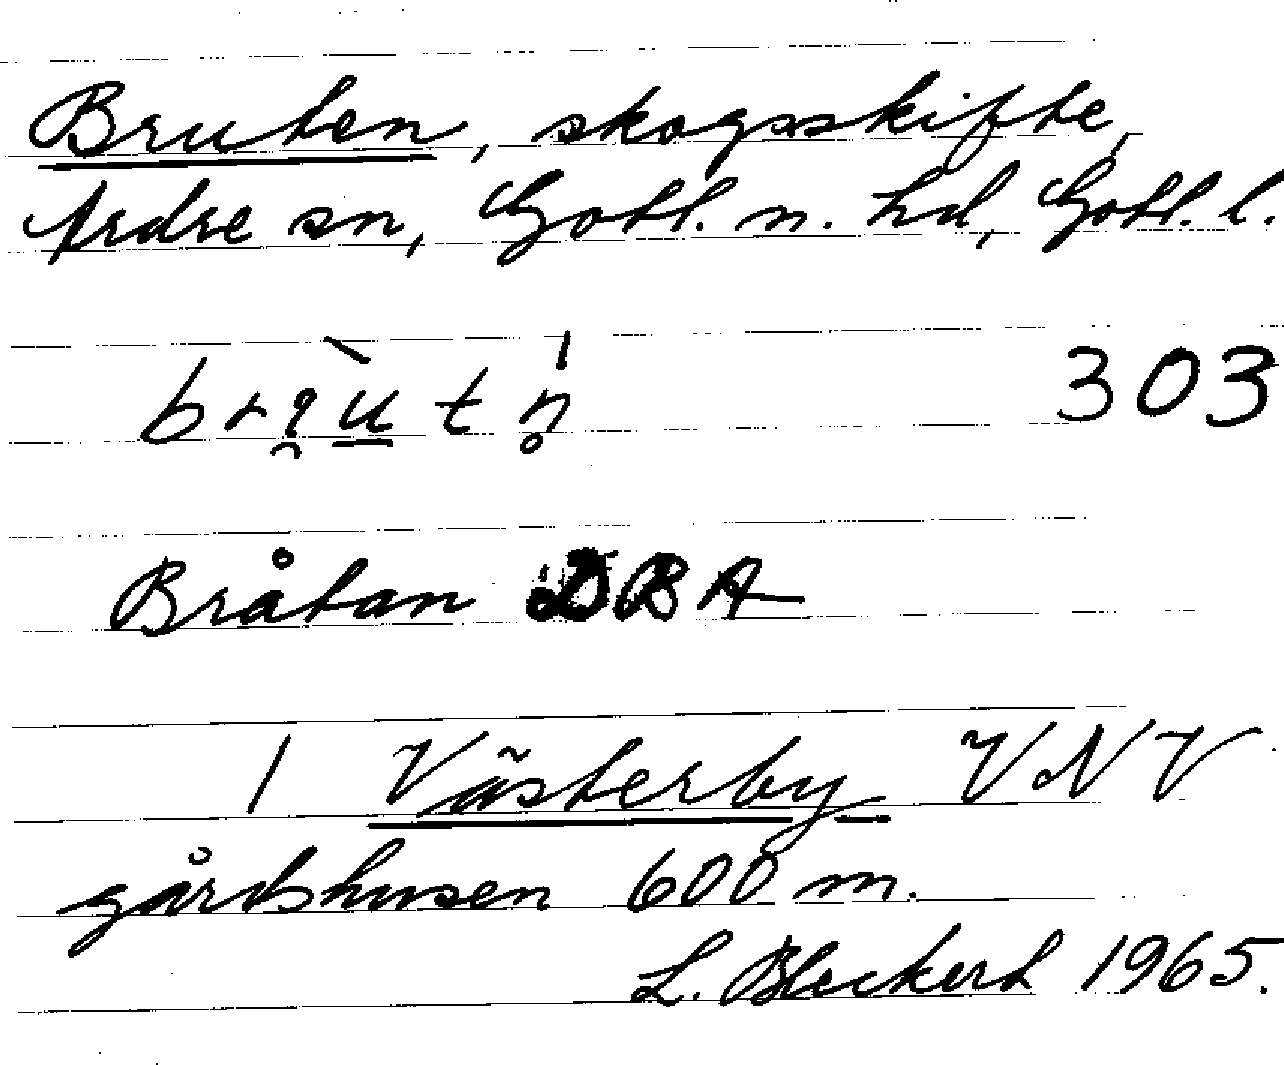 Bruten, skogsskifte,
Ardre sn, Gotl. n. hd, Gotl. l.
303
Bråtan DBA
1 Västerby VNV
gårdshusen 600 m.
L. Bleckert 1965.